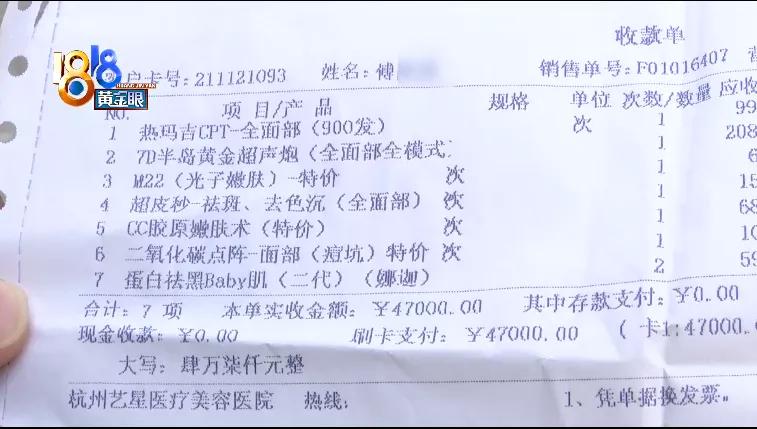 收款单
1818
黄金眼
户卡号:211121093 姓名:傅 销售单号:F01016407
NO. 项目/产品 规格 单位 次数/数量 应收
1 热玛吉CPT-全面部(900发) 次 1 99
2 7D半岛黄金超声炮(全面部全模式) 1 208
3 M22(光子嫩肤)-特价 次 1 6
4 超皮秒-祛斑、去色沉(全面部) 次 1 15
5 CC胶原嫩肤术(特价) 次 1 68
6 二氧化碳点阵-面部(痘坑)特价 次 1 10
7 蛋白祛黑Baby肌(二代)(娜迦) 2 59
合计:7 项 本单实收金额:¥47000.00 其中存款支付:¥0.00
现金收款:¥0.00 刷卡支付:¥47000.00 (卡1:47000.
大写:肆万柒仟元整
杭州艺星医疗美容医院 热线: 1、凭单据换发票。